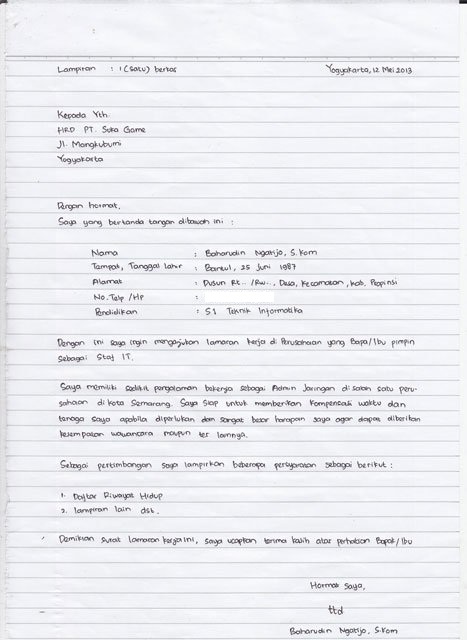 Lampiran : 1 (satu) berkas
Yogyakarta, 12 Mei 2013
Kepada Yth.
HRD PT. Suka Game
Jl. Mangkubumi
Yogyakarta
Dengan hormat.
Saya yang bertanda tangan dibawah ini :
Nama : Baharudin Ngatijo, S.Kom
Tempat, Tanggal Lahir : Bantul, 25 Juni 1987
Alamat : Dusun Rt.. /Rw.., Desa, Kecamatan, Kab, Propinsi
No. Telp /HP :
Pendidikan : S1 Teknik Informatika
Dengan ini saya ingin mengajukan lamaran kerja di Perusahaan yang Bapa/Ibu pimpin
sebagai Staf IT.
Saya memiliki sedikit pengalaman bekerja sebagai Admin Jaringan di salah satu peru-
sahaan di kota Semarang. Saya siap untuk memberikan kompensasi waktu dan
tenaga saya apabila diperlukan dan sangat besar harapan saya agar dapat diberikan
kesempatan wawancara maupun tes lainnya.
Sebagai pertimbangan saya lampirkan beberapa persyaratan sebagai berikut :
1. Daftar Riwayat Hidup
2. lampiran lain dst.
Demikian surat lamaran kerja ini, saya ucapkan terima kasih atas perhatian Bapak/Ibu
Hormat Saya,
ttd
Baharudin Ngatijo, S.Kom